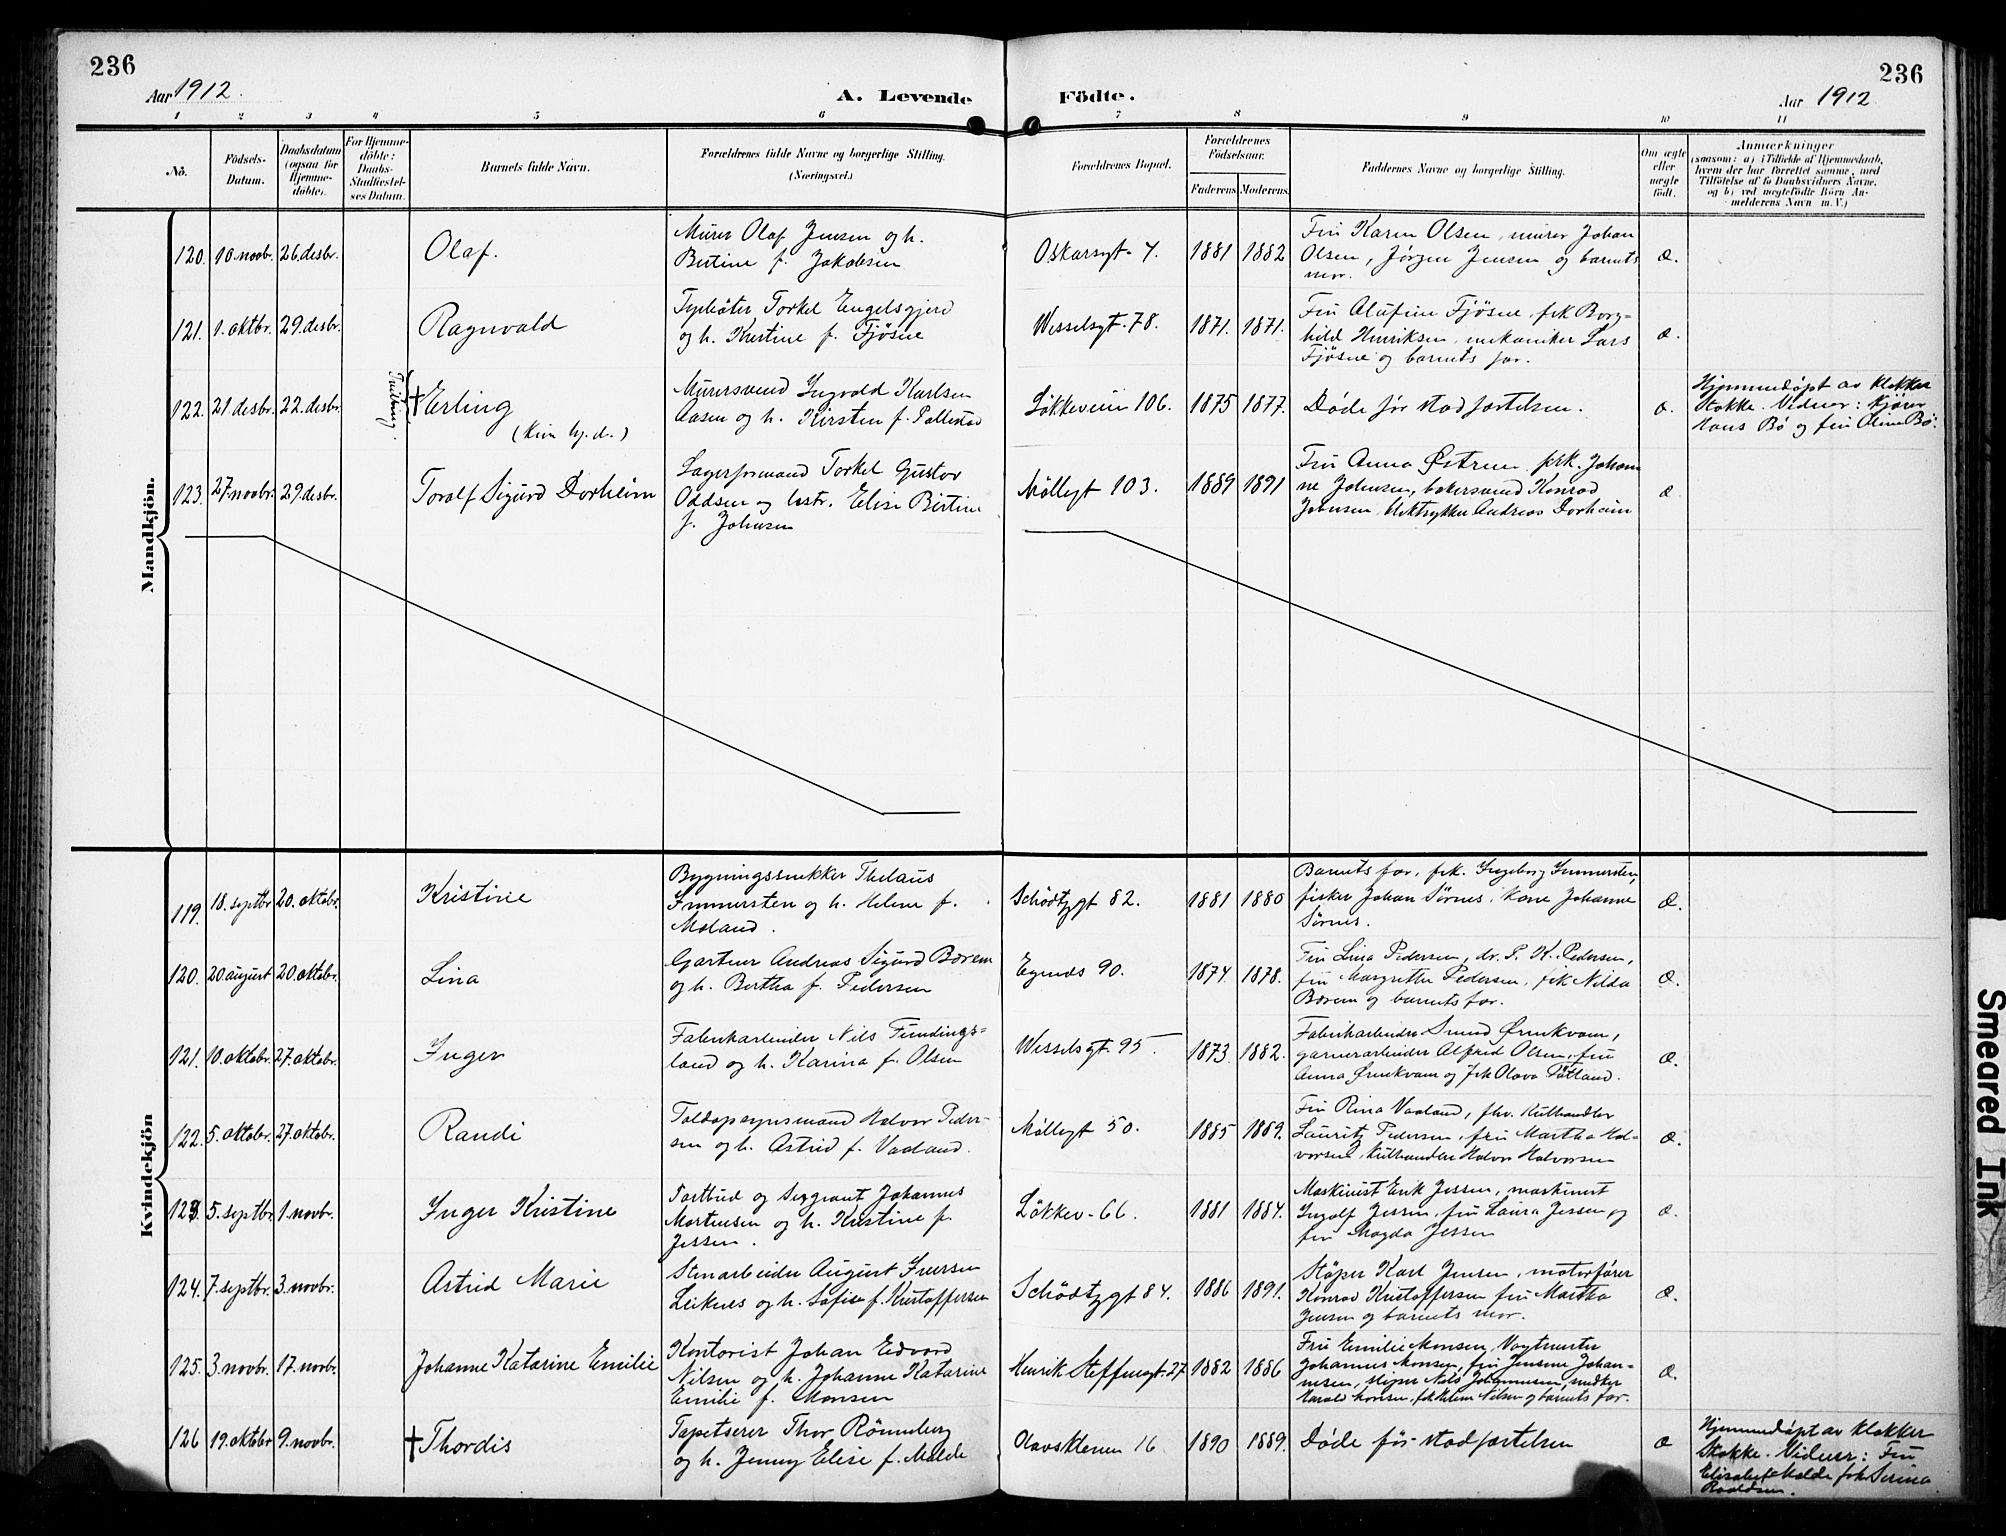 236
236
Aar 1912.
A. Levende
Födte.
Aar 1912
1 2 3 4 5 6 7 8 9 10 11
No.
Födsels-Datum.
Daabsdatum (ogsaa for Hjemmedöbte).
For Hjemmedöbte: Daabs-Stadfæstelses Datum.
Barnets fulde Navn.
Forældrenes fulde Navne og borgerlige Stilling. (Næringsvei.)
Forældrenes Bopæl.
Forældrenes Födselsaar.
Faderens Moderens
Faddernes Navne og borgerlige Stilling.
Om ægte eller uægte födt.
Anmærkninger
(saasom: a) i Tilfælde af Hjemmedaab,
hvem der har forrettet samme, med
Tilföielse af to Daabsvidners Navne,
og b) ved uægtefödte Börn An-
melderens Navn m. V.)
Mandkjön.
120. 10. novbr. 26. desbr.
Olaf.
Murer Olaf Jensen og h.
Bertine f. Jakobsen
Oskarsgt. 7.
1881 1882
Fru Karen Olsen, murer Johan
Olsen, Jørgen Jensen og barnets
mor.
æ.
121. 1. oktbr. 29. desbr.
Ragnvald
Torkel Engelsgjerd
og h. Kristine f. Fjøsne
Wesselsgt. 78.
1871. 1871.
Fru Alufine Fjøsne, frk Borg-
hild Henriksen, mekaniker Lars
Fjøsne og barnets far.
æ.
122. 21 desbr. 22. desbr.
† Erling
(kun hj. d.)
Murersvend Ingvald Karlsen
Aasen og h. Kirsten f. Tallestad
Løkkeveien 106.
1875 1877.
Døde før stadfæstelsen.
æ.
Hjemmedøpt av klokker
Stokke. Vidner: kjører
Hans Bø og fru Oline Bø.
123. 27. novbr. 29. desbr.
Toralf Sigurd Dorheim
Lagerformand Torkel Gustav
Oddsen og hstr. Elise Bertine
f. Johnsen
Møllegt 103.
1889 1891
Fru Anna Østrem, frk. Johan
ne Johnsen, bakersvend Konrad
Johnsen, bloktrykker Andreas Dorheim
æ
Kvindekjön
119. 18. septbr 20. oktobr.
Kristine
Bygningssnekker Thelaus
Immersten og h. Helene f.
Moland.
Schødtzgt 82.
1881 1880
Barnets far, frk. Ingeborg Immersten,
fisker Johan Sørnes, kone Johanne
Sørnes.
æ.
120. 20 august 20. oktobr.
Lina
Gartner Andreas Sigurd Borem
og h. Bertha f. Pedersen
Egends 90.
1874. 1878.
Fru Lina Pedersen, dr. P. K. Pedersen,
fru Margrethe Pedersen, frk Nilda
Borem og barnets far.
æ.
121. 10. oktobr. 27. oktobr.
Inger
Fabrikarbeider Nils Fundings-
land og h. Karina f. Olsen
Wesselsgt. 95
1873. 1882.
Fabrikarbeider Svend Ørnekvam,
garverarbeider Alfred Olsen, fru
Anna Ørnekvam og frk Olava Tøtland.
æ.
122. 5. oktobr. 27. oktobr.
Randi
Toldopsynsmand Halvor Peder-
sen og h. Astrid f. Vaaland.
Møllegt 50.
1885 1889.
Fru Rina Vaaland, fhv. kulhandler
Lauritz Pedersen, fru Martha Hal-
vorsen, kulhandler Halvor Halvorsen
æ.
123. 5. septbr. 1. novbr.
Inger Kristine
Fartbud og Sergeant Johannes
Mortensen og h. Kristine f.
Jessen.
Løkkev. 66.
1881 1884.
Maskinist Erik Jessen, maskinist
Ingolf Jessen, fru Laura Jessen og
fru Magda Jessen
æ.
124. 7. septbr. 3. novbr.
Astrid Marie
Stenarbeider August Iversen
Leiknes og h. Sofie f. Kristoffersen
Schødtzgt 84.
1886 1891.
Støper Karl Jensen, motorfører
Konrad Kristoffersen fru Martha
Jensen og barnets mor.
æ.
125. 3. novbr. 17. novbr.
Johanne Katarine Emilie
Kontorist Johan Edvard
Nilsen og h. Johanne Katarine
Emilie f. Monsen
Henrik Steffensgt. 27
1882 1886
Fru Emilie Monsen, Vagtmester
Johannes Monsen, fru Jensine Johan-
nesen, sliper Nils Johannesen, snekker
Harald Monsen, frk Helene Nilsen og barnets far.
æ.
126 19. oktobr 9. novbr.
† Thordis
Tapetserer Thor Rönneberg
og h. Jenny Elise f. Malde
Olavskleven 16.
1890 1889.
Døde før stadfæstelsen
æ
Hjemmedøpt av klokker
Stokke. Vidner: Fru
Elisabet Malde frk Serina
Roaldsen.
Smeared Ink